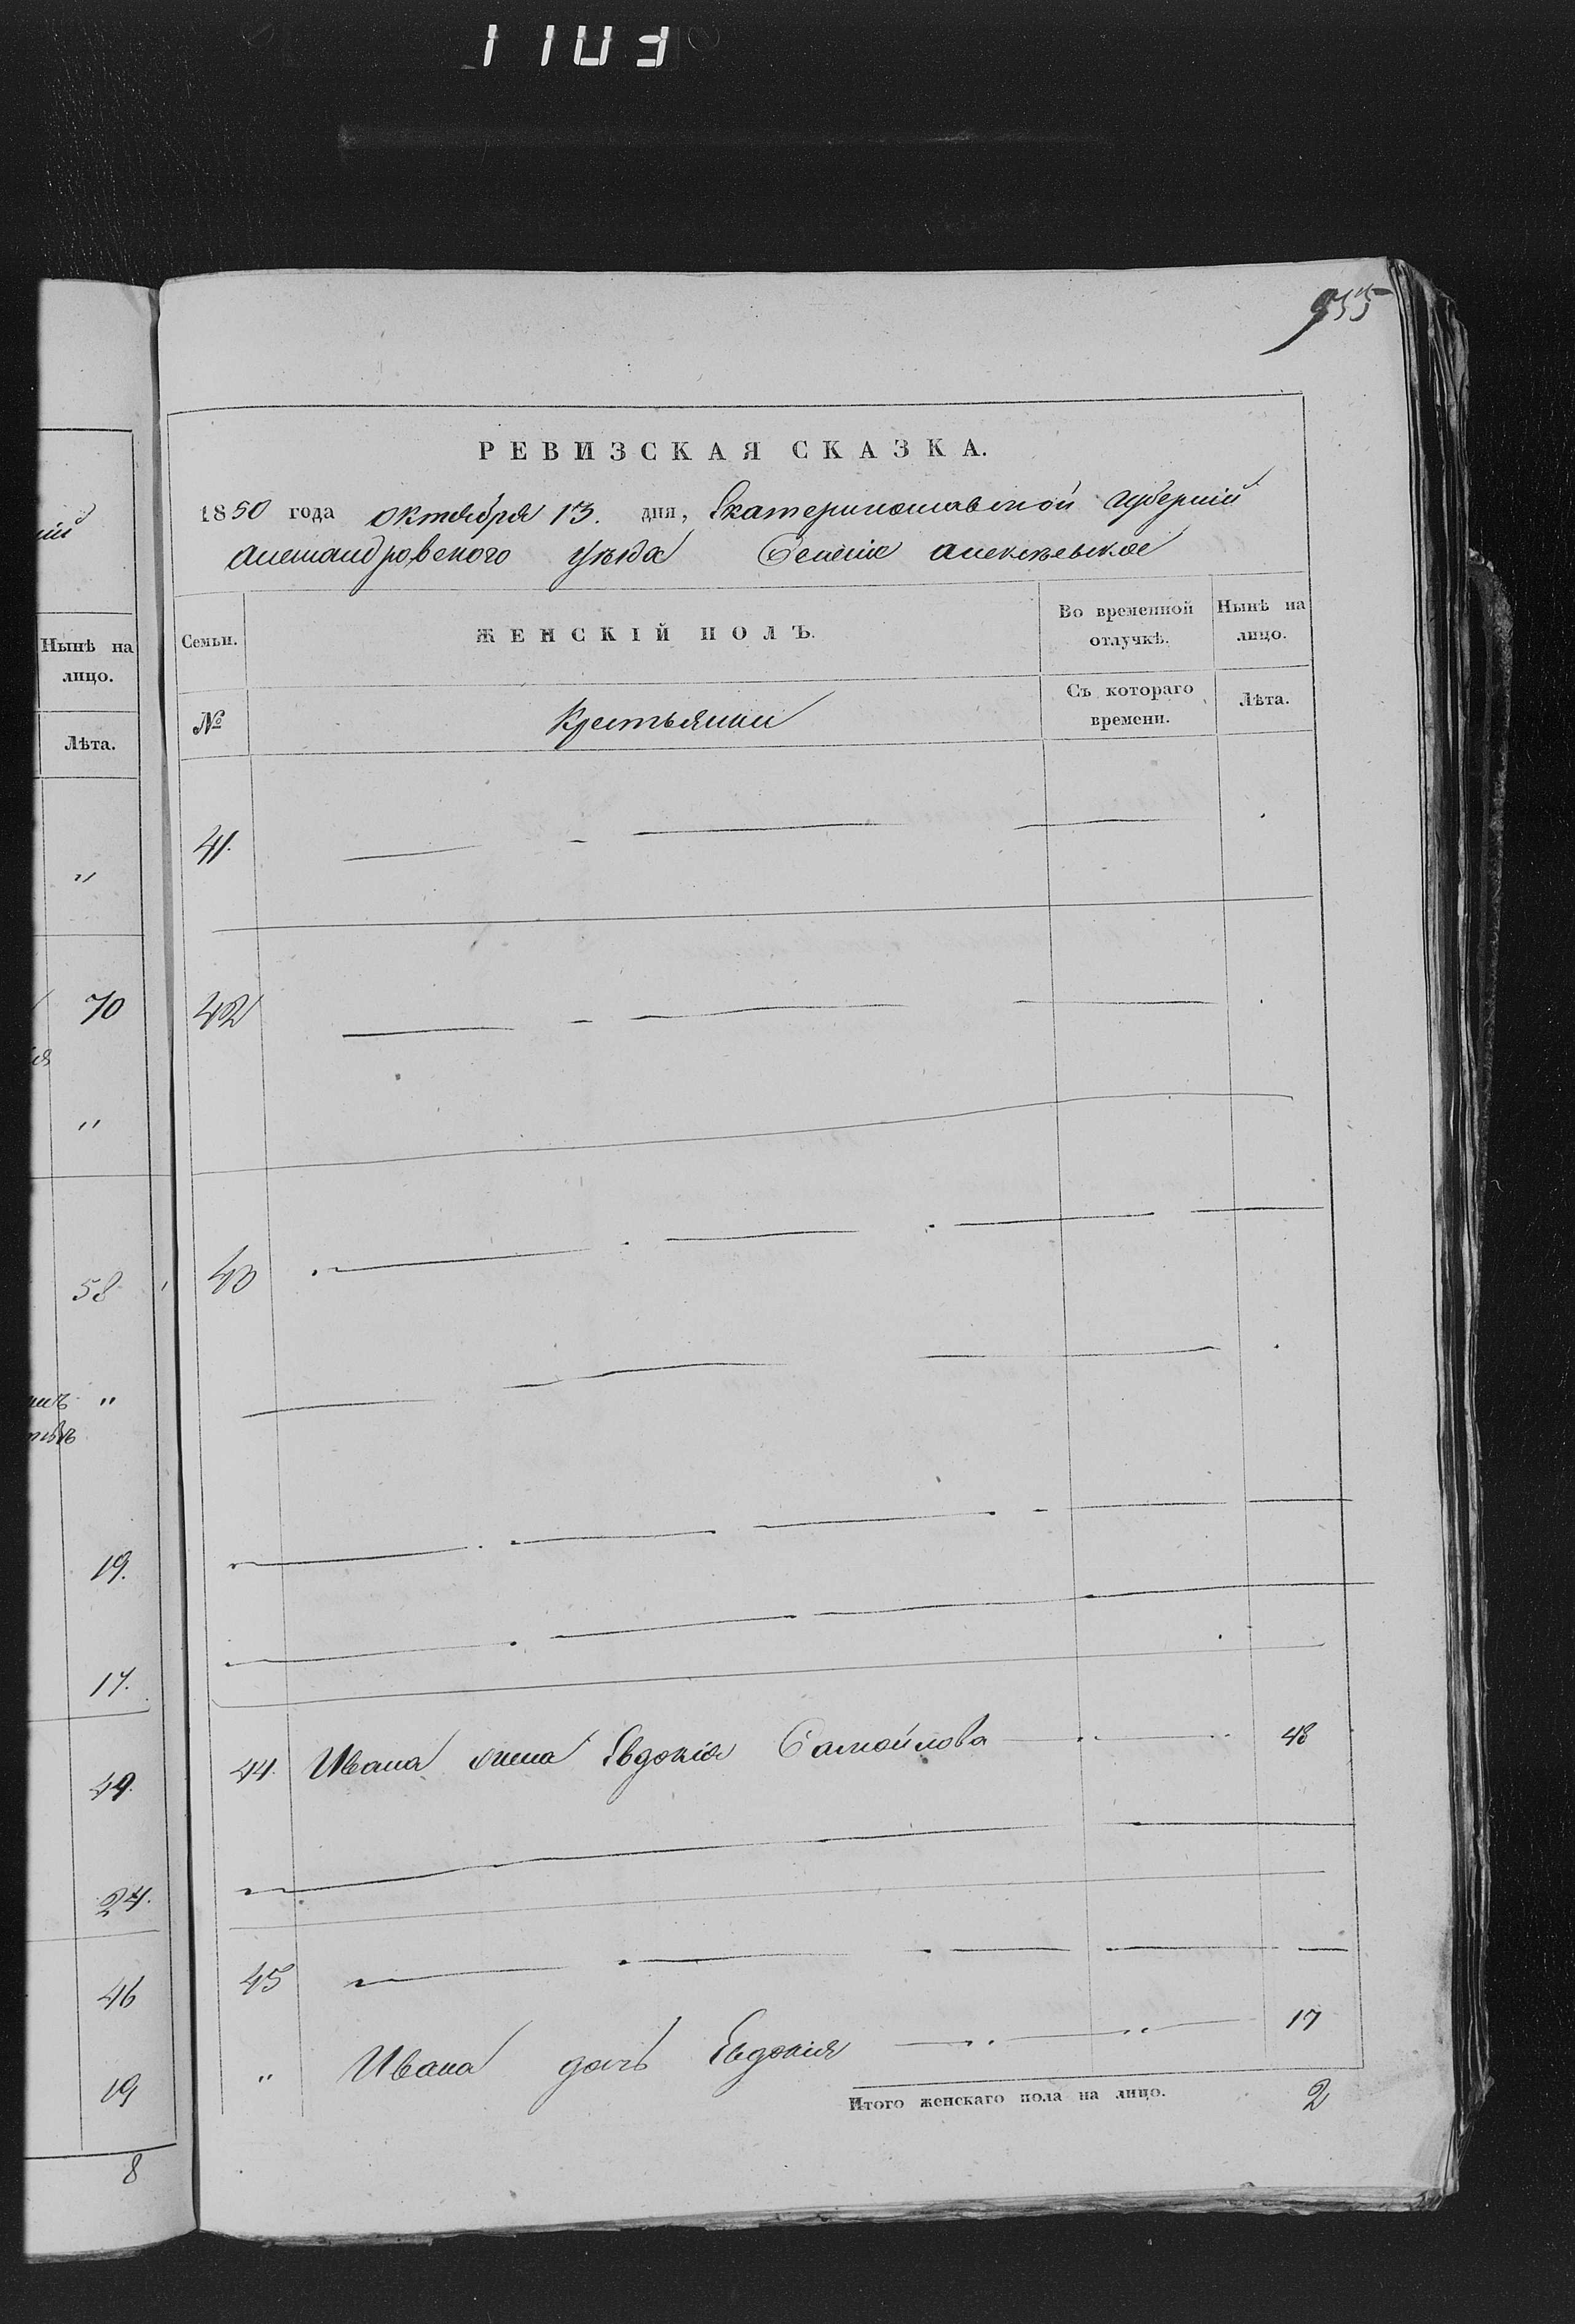 1103
955
РЕВИЗСКАЯ СКАЗКА.
1850 года октября 13. дня, Екатеринославской губерніи
александровского уѣзда Селеніе алексѣевское
Нынѣ на лицо.
Лѣта.
"
70
"
58
"
19.
17.
49.
24.
46
19
8
Семьи. ЖЕНСКІЙ ПОЛЪ. Во временной отлучкѣ. Нынѣ на лицо.
№ Крестьянки Съ котораго времени. Лѣта.
41.
42
43
44. Ивана жена Евдокія Самойлова 48
45
" Ивана дочь Евдокія 17
Итого женскаго пола на лицо. 2